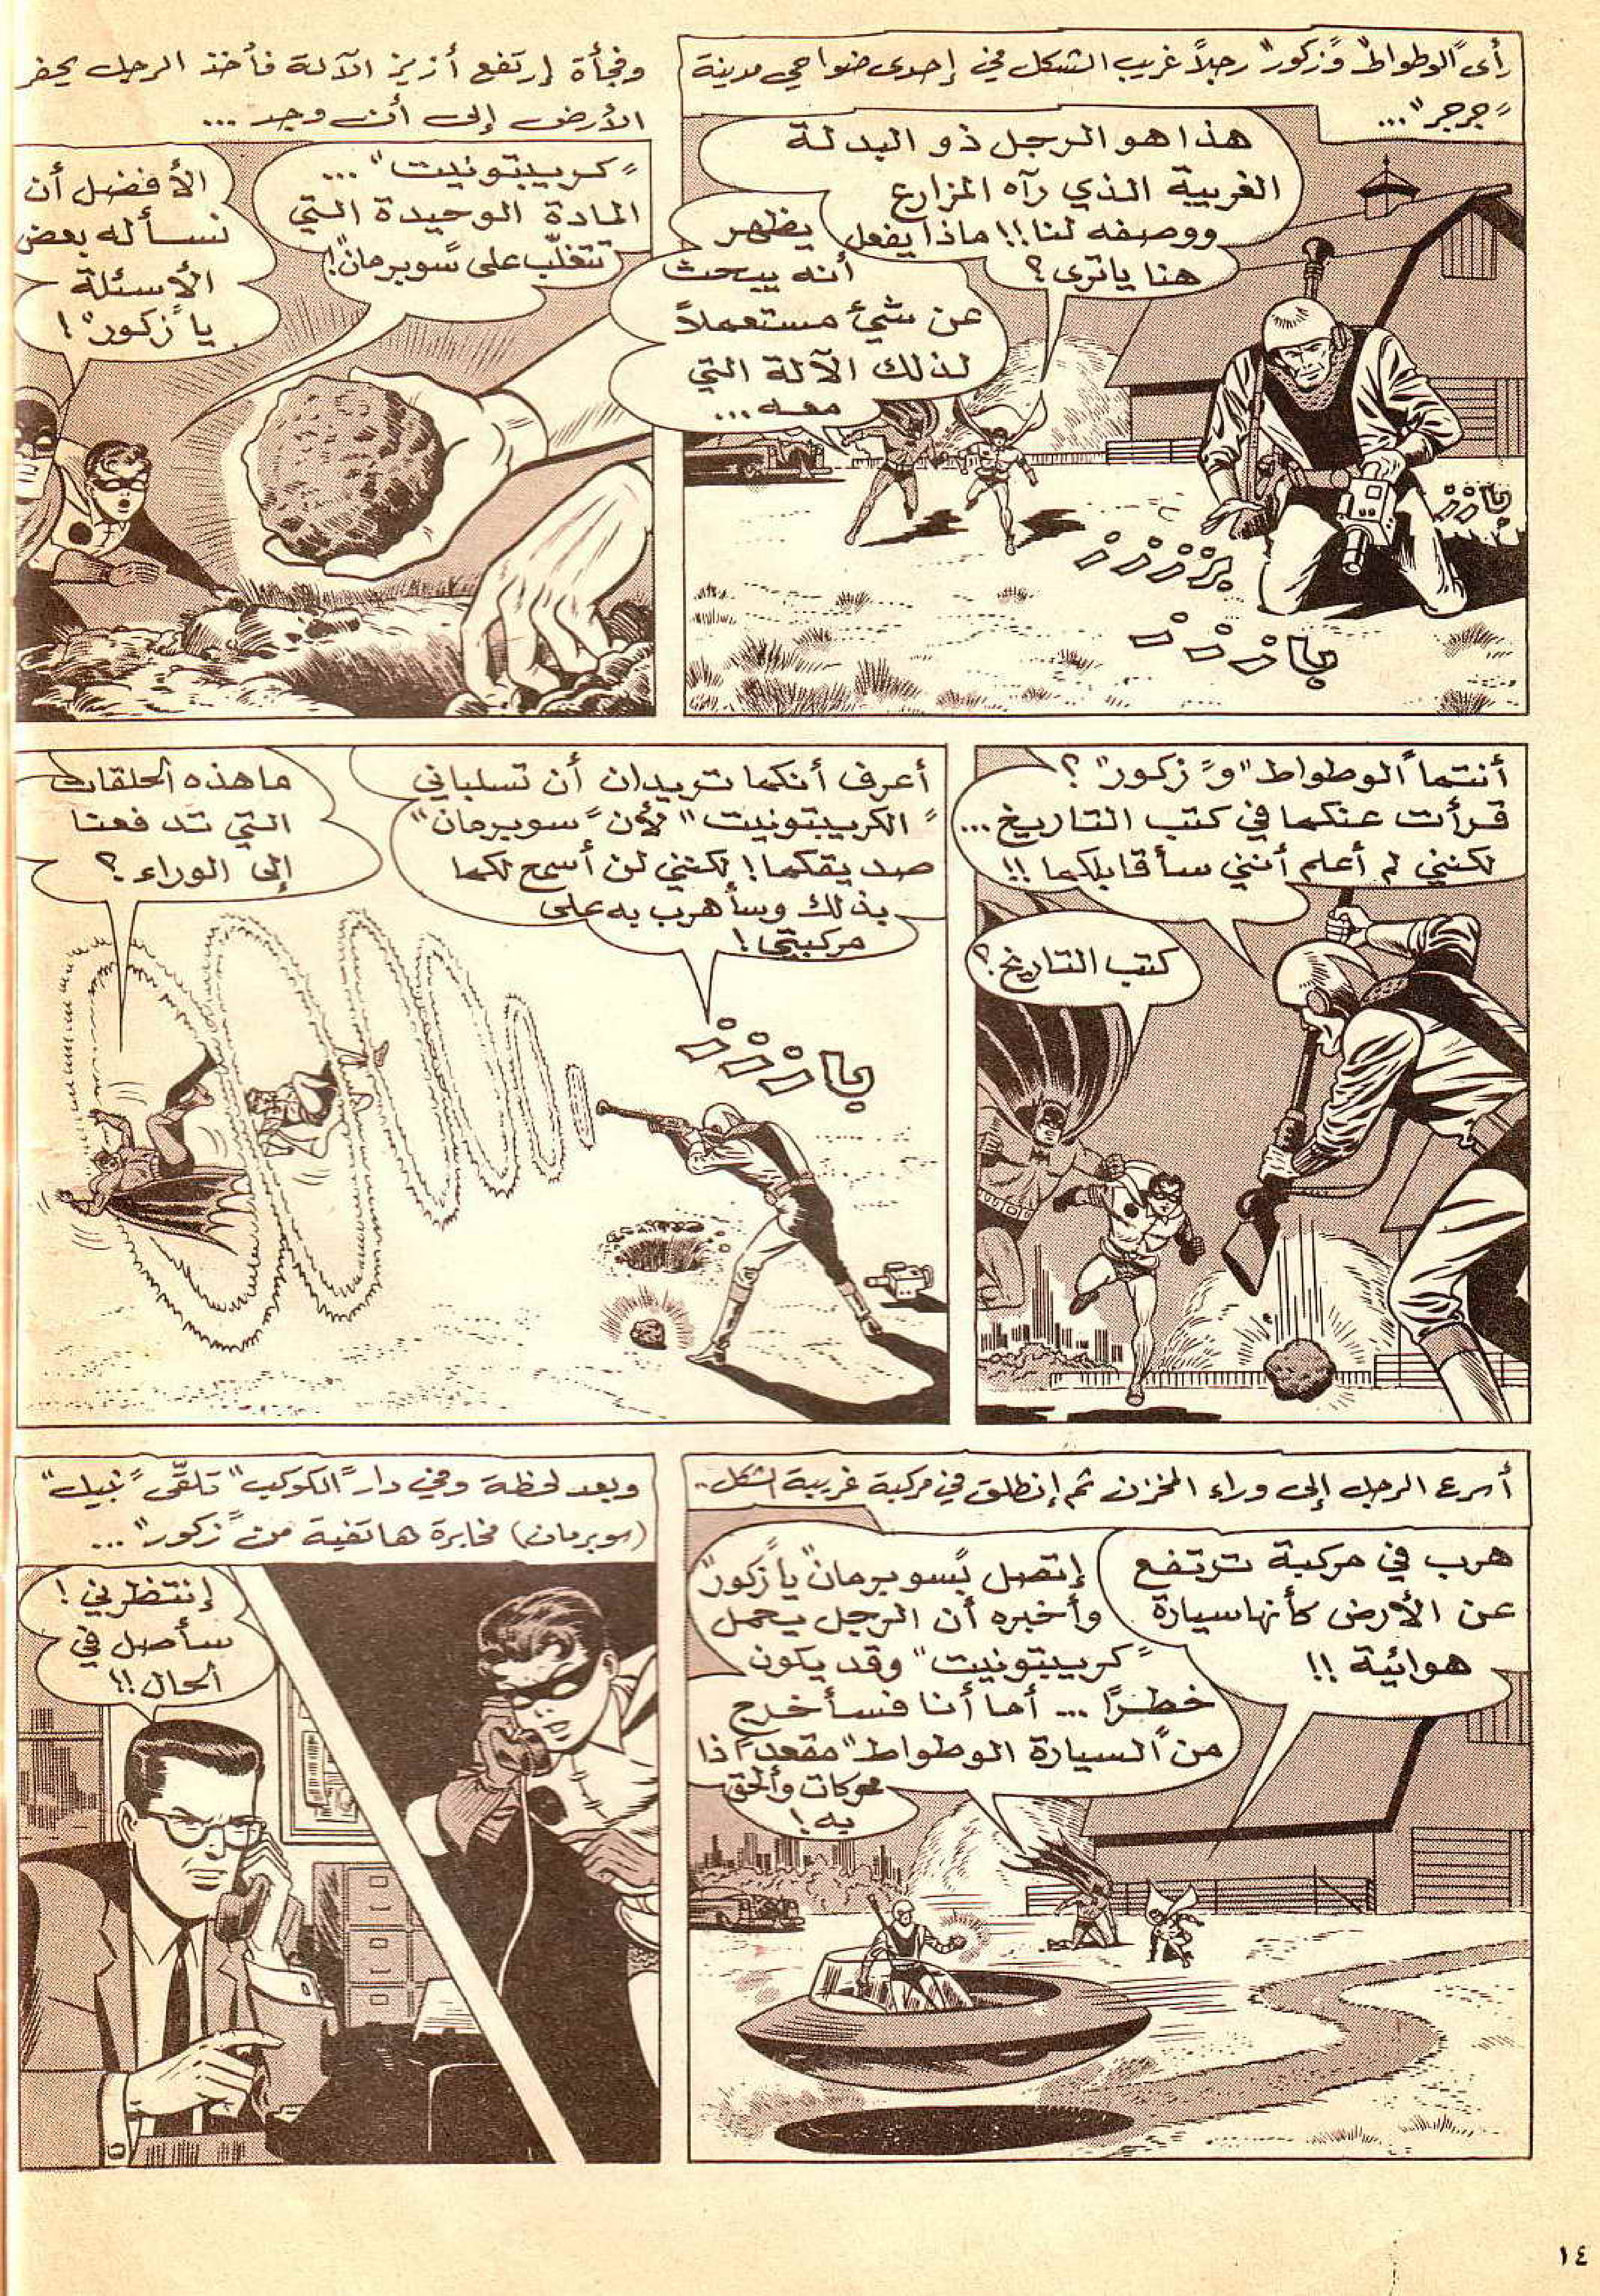 رأى "الوطواط" و"زكور" رجلاً غريب الشكل في إحدى ضواحي مدينة
"جرجر"...
هذا هو الرجل ذو البدلة
الغريبة الذي رآه المزارع
ووصفه لنا!! ماذا يفعل
هنا يا ترى؟
يظهر
أنه يبحث
عن شيء مستعملاً
لذلك الآلة التي
معه...
بازززز
بزززز
باززز
وفجأة إرتفع أزيز الآلة فأخذ الرجل يحفر
الأرض إلى أن وجد...
"كريبتونيت"...
المادة الوحيدة التي
تتغلّب على "سوبرمان"!
الأفضل أن
نسأله بعض
الأسئلة
يا "زكور"!
أنتما "الوطواط" و"زكور"؟
قرأت عنكما في كتب التاريخ...
لكنني لم أعلم أنني سأقابلكما!!
كتب التاريخ؟
أعرف أنكما تريدان أن تسلباني
"الكريبتونيت" لأن "سوبرمان"
صديقكما! لكنني لن أسمح لكما
بذلك وسأهرب به على
مركبتي!
بازززز
ما هذه الحلقات
التي تدفعنا
إلى الوراء؟
أسرع الرجل إلى وراء المخزن ثم إنطلق في مركبة غريبة الشكل..
هرب في مركبة ترتفع
عن الأرض كأنها سيارة
هوائية!!
إتصل بـ"سوبرمان" يا "زكور"
وأخبره أن الرجل يحمل
"كريبتونيت" وقد يكون
خطرًا... أما أنا فسأخرج
من "السيارة الوطواط" مقعدًا ذا
محركات وألحق
به!
وبعد لحظة وفي دار "الكوكب" تلقّى "نبيل"
(سوبرمان) مخابرة هاتفية من "زكور"...
إنتظرني!
سأصل في
الحال!!
١٤